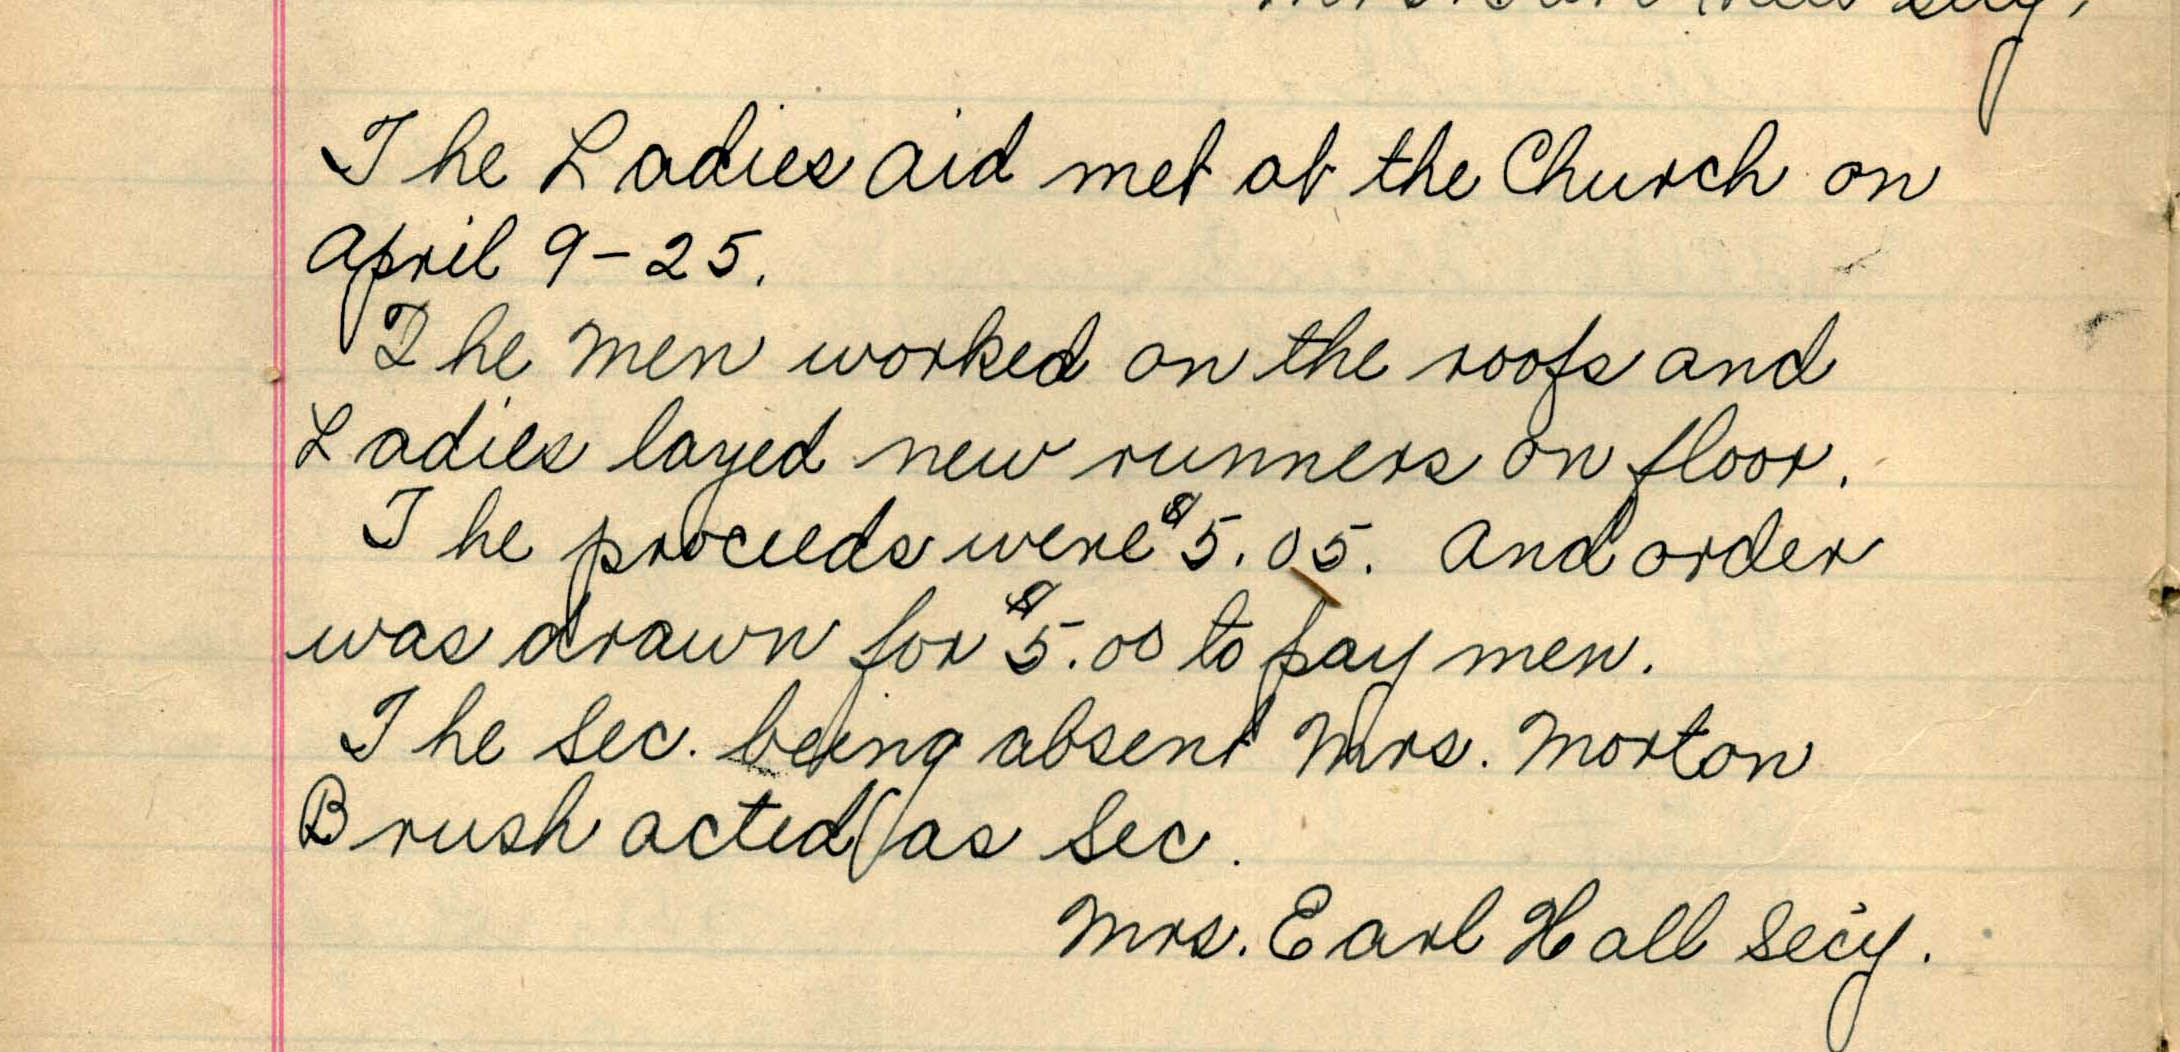 Secy.
The Ladies Aid met at the Church on
April 9-25.
The men worked on the roofs and
Ladies layed new runners on floor.
The proceeds were $5.05. And order
was drawn for $5.00 to pay men.
The Sec. being absent Mrs. Morton
Brush acted as Sec.
Mrs. Earl Hall Secy.